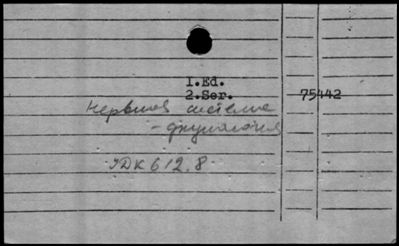 1.Ed.
2.Ser. 75442
Нервная система
- физиология
УДК 612.8